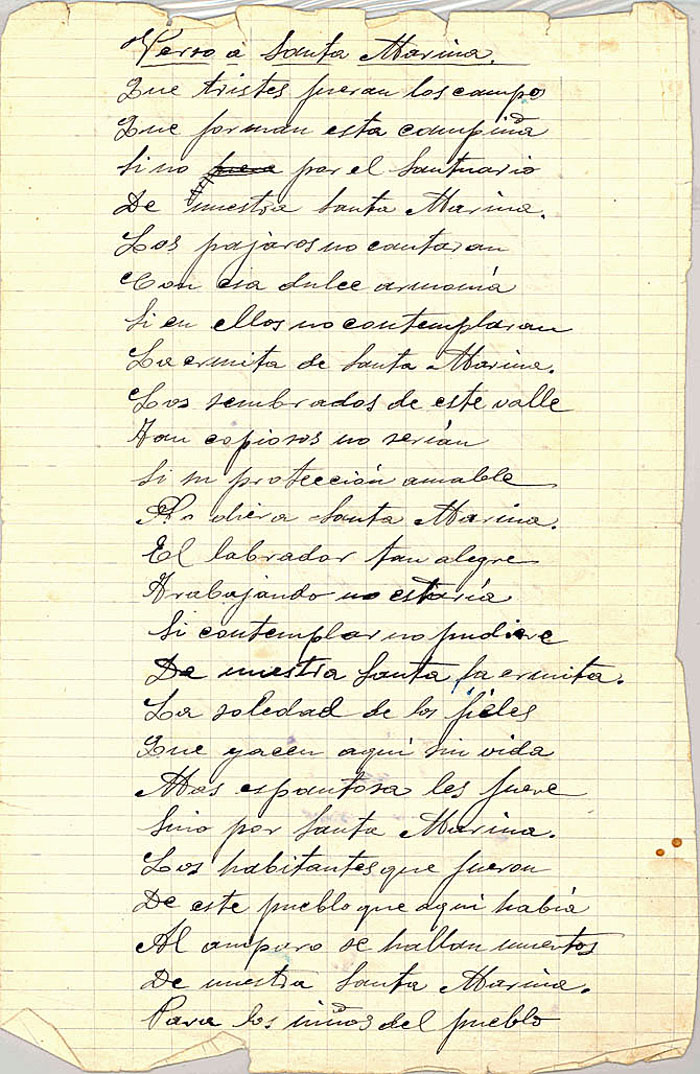 Verso á Santa Marina.
Que tristes fueran los campos
Que forman esta campiña
Si no fuera por el Santuario
De nuestra Santa Marina.
Los pajaros no cantaran
Con esa dulce armonía
Si en ellos no contemplaran
La ermita de Santa Marina.
Los sembrados de este valle
Tan copiosos no serían
Si su protección amable
No diera Santa Marina.
El labrador tan alegre
Trabajando no estaría
Si contemplar no pudiere
De nuestra Santa la ermita.
La soledad de los fieles
Que yacen aquí sin vida
Mas espantosa les fuere
Sino por Santa Marina.
Los habitantes que fueron
De este pueblo que aquí había
Al amparo se hallan muertos
De nuestra Santa Marina.
Para los niños del pueblo